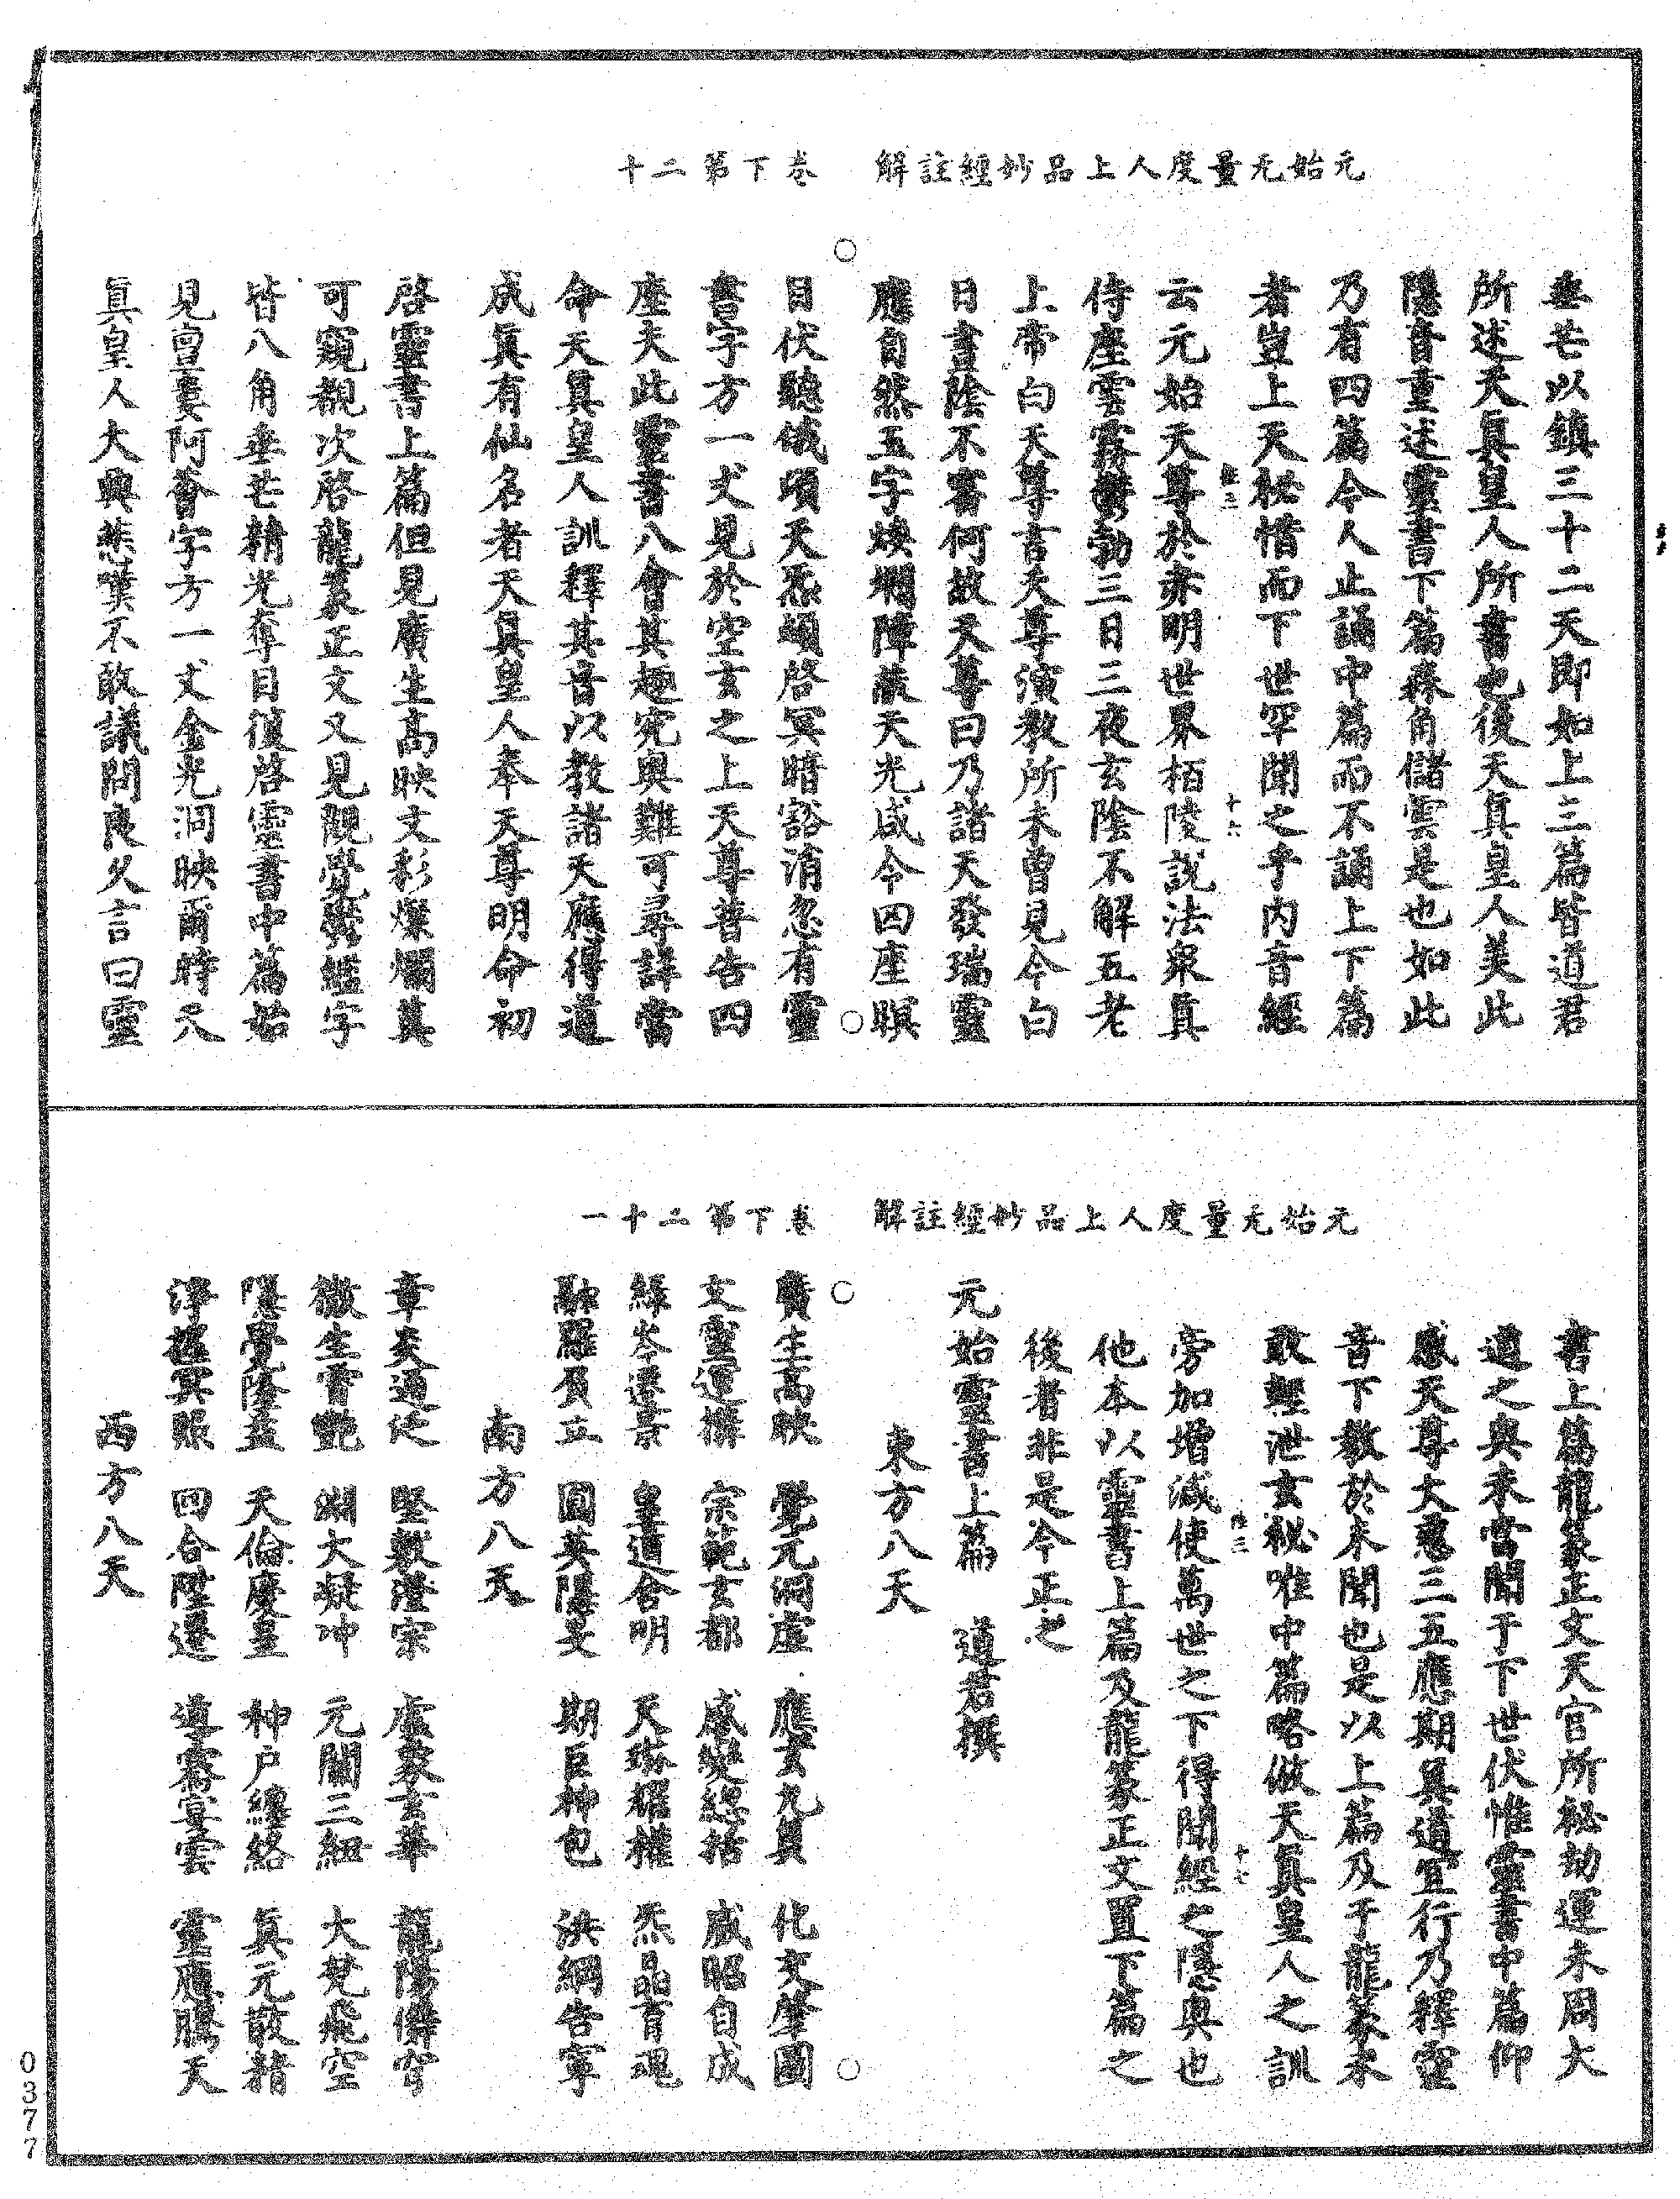 元始无量度人上品妙經註解　卷下第二十
垂芒以鎮三十二天即如上三篇皆道君
所述天真皇人所書也後天真皇人美此
隱音重述靈書下篇森角儲雲是也如此
乃有四篇今人止誦中篇而不誦上下篇
者豈上天秘惜而下世罕聞之乎内音經
云元始天尊於赤明世界栢陵說法衆真
侍座雲霧鬱勃三日三夜玄陰不解五老
上帝白天尊言天尊演教所未曾見今白
日晝陰不審何故天尊曰乃諸天發瑞靈
應自然玉字煥爛障蔽天光咸令四座瞑
目伏聽俄頃天炁頓啓冥暗豁消忽有靈
書字方一丈見於空玄之上天尊普告四
座夫此靈書八會其趣宛奥難可尋詳當
命天真皇人訓釋其音以教諸天應得道
成真有仙名者天真皇人奉天尊明命初
啓靈書上篇但見廣生高映文彩燦爛莫
可窺覩次啓龍篆正文又見覬覺 鑑字
皆八角垂芒精光奪目復啓靈書中篇始
見亶婁阿薈字方一丈金光洞映爾時天
真皇人大興悲嘆不敢議問良久言曰靈
元始无量度人上品妙經註解　卷下第二十一
書上篇龍篆正文天官所秘劫運未周大
道之奥未嘗聞于下世伏惟靈書中篇仰
感天尊大慈三五應期真道宜行乃釋靈
音下教於未聞也是以上篇及于龍篆未
敢輕泄玄秘唯中篇略倣天真皇人之訓
旁加增減使萬世之下得聞經之隱奥也
他本以靈書上篇及龍篆正文置下篇之
後者非是今正之
元始靈書上篇　道君撰
東方八天
廣生高映　覺元洞虛　應玄九真　化文肇圖
文靈運構　宗範玄都　感變總括　咸昭自成
緯岑遷景　皇道含明　天璐耀權　炁晶育魂
融羅育正　圓英隱旻　期臣神包　洪綱告寧
南方八天
章炎通延　堅數澄宗　虛篆玄華　龍陽㒰穹
微生膏艷　淵大凝冲　元關三紐　大梵飛空
隱覺蔭益　天倫慶皇　神戶纏絡　真元散楮
淨極冥賑　四合陞遷　道騫宴雲　靈應騰天
西方八天
陰三
十六
陰三
十七
0377